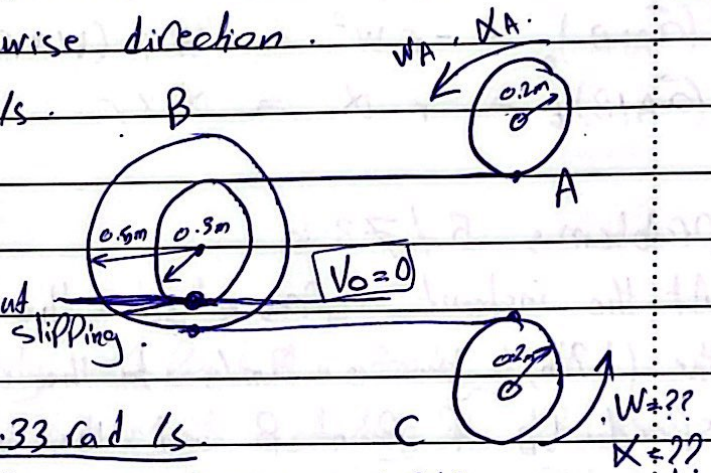 wise direction.
WA, αA.
/s.
B
0.2m
A
0.5m
0.3m
Vo=0
ut
slipping.
0.2m
.33 rad /s.
C
W=??
α=??